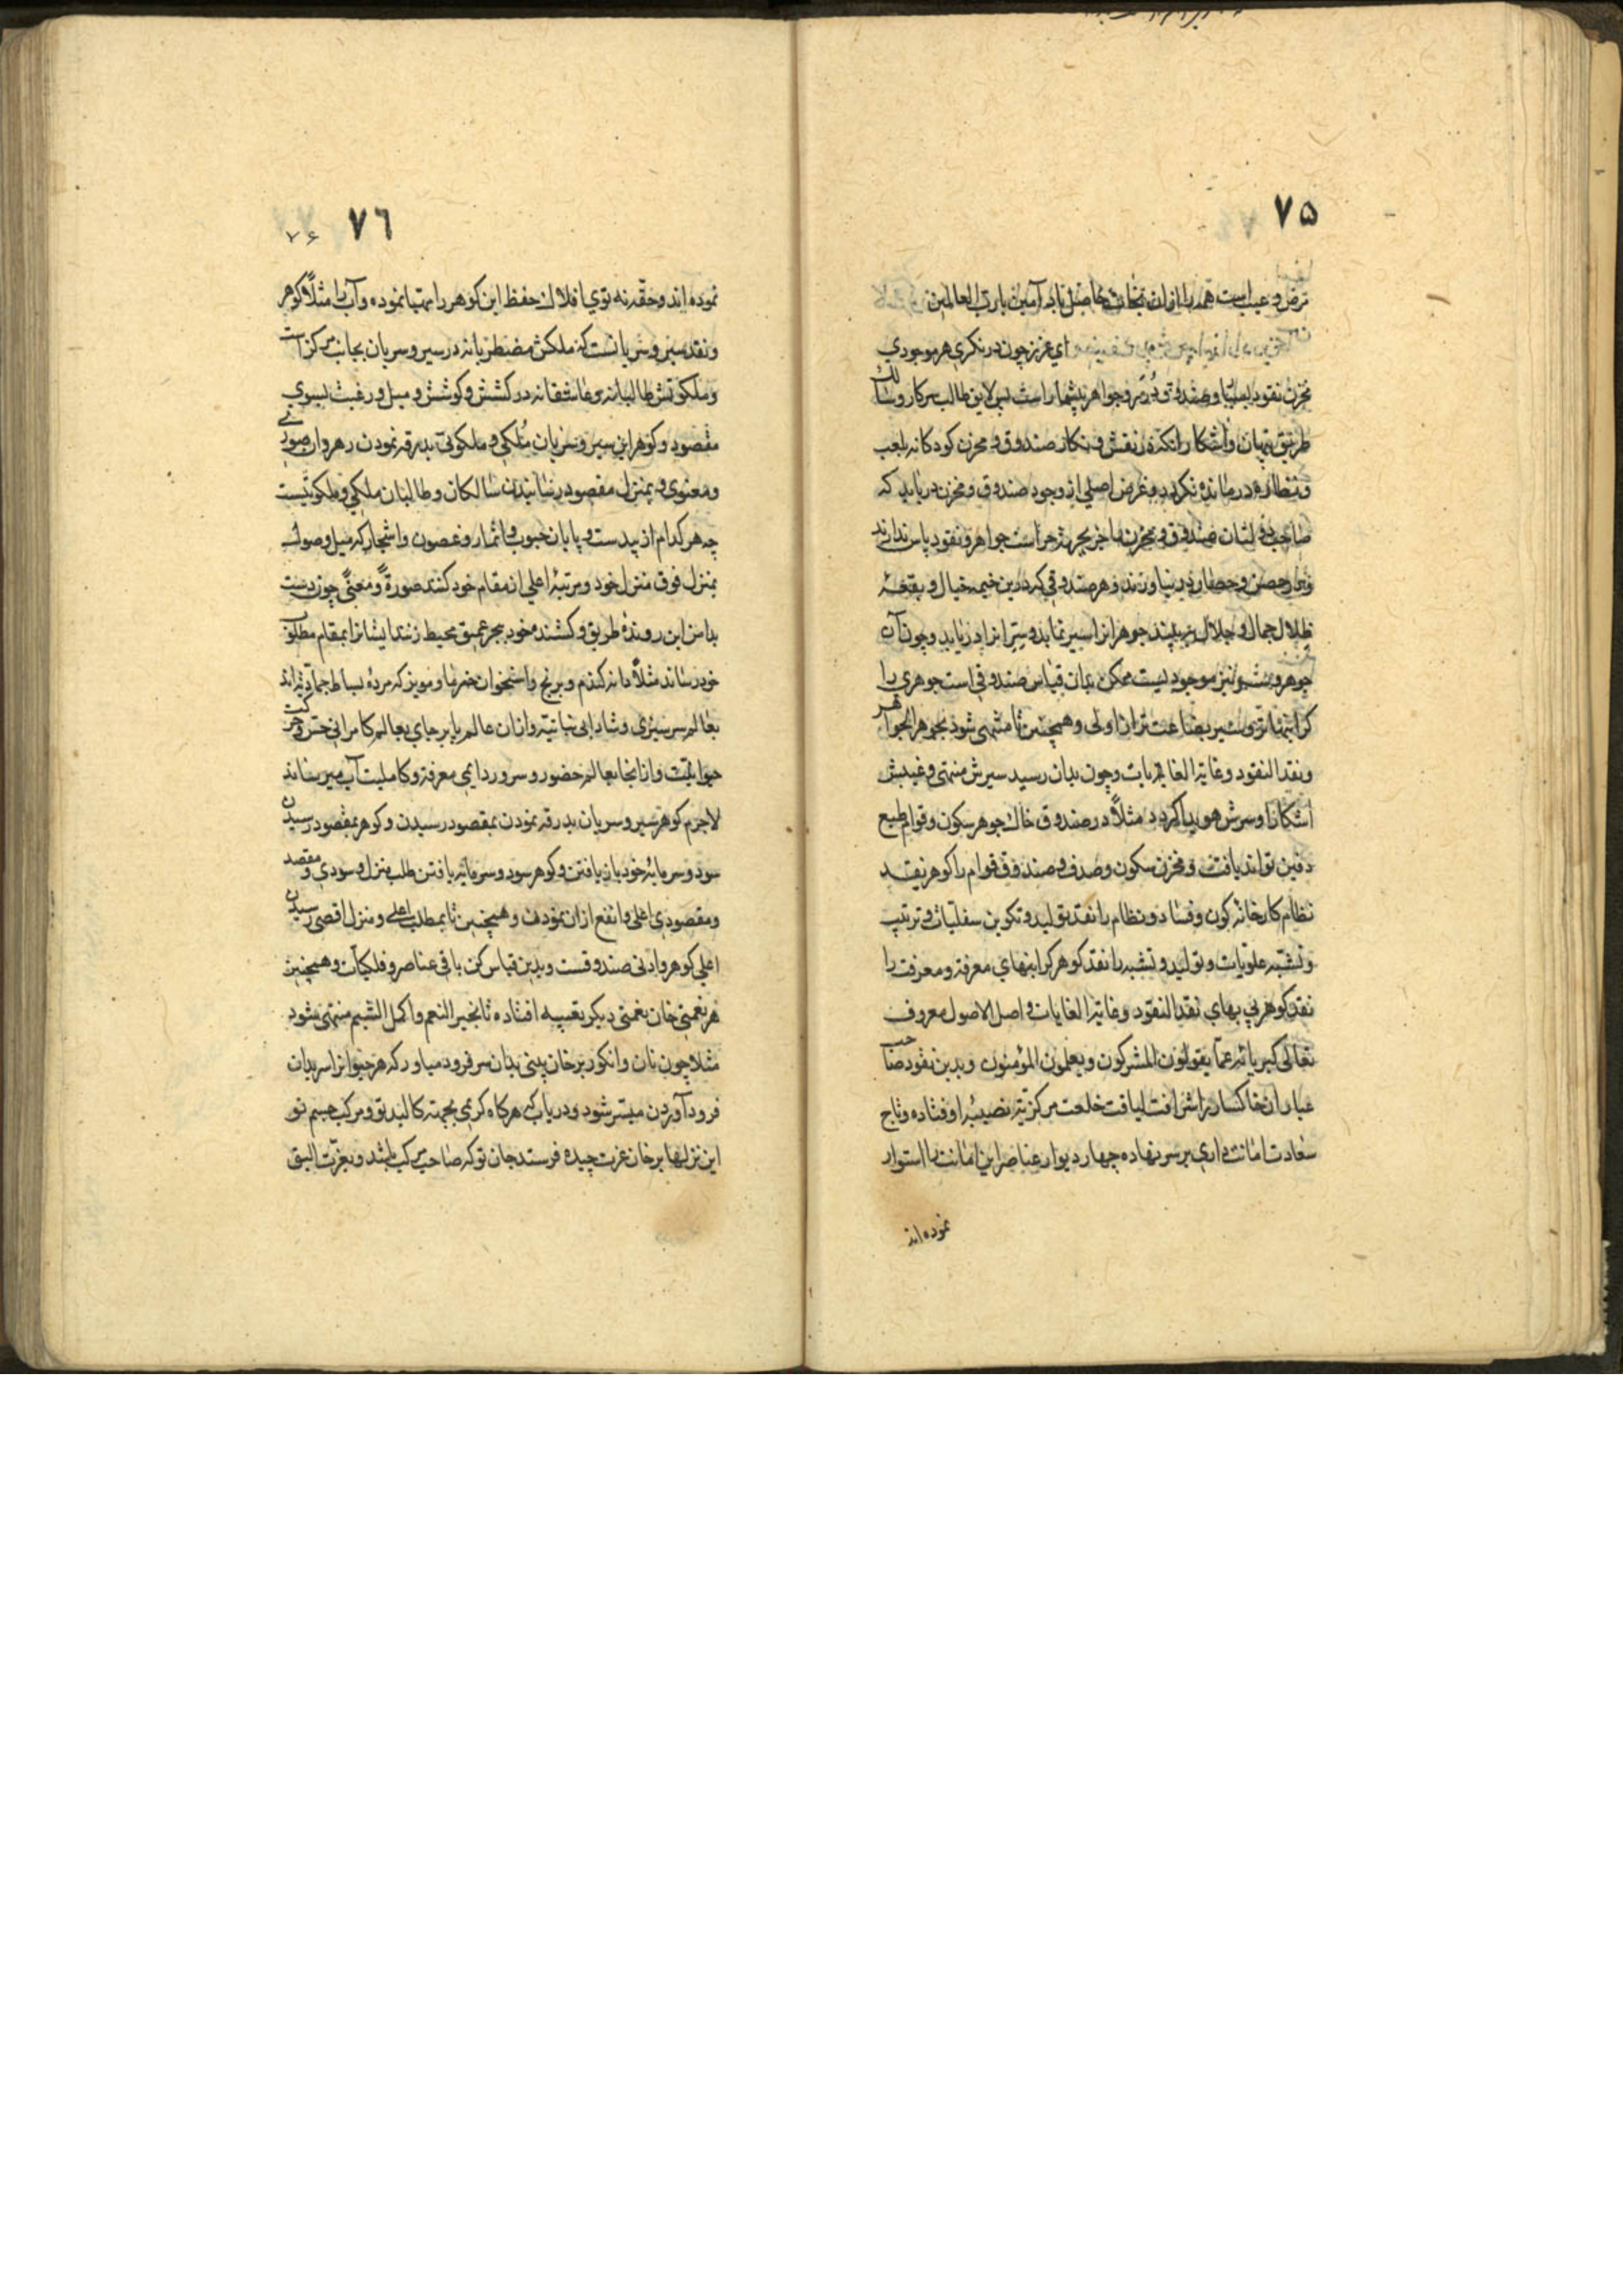 ۷۵
مرض و عیب است همه را از ان نجات حاصل باد آمین یا رب العالمین
ای عزیز چون درنکری هر موجودی
مخزن نقود بسیار و صندوق در و جواهر بیشمار است پس لایق طالب سرکار و سالک
طریق پنهان و آشکار انکه در نقش و نکار صندوق و مخزن کودکانه بلعب
و نظاره درمانده نکردد و غرض اصلی از وجود صندوق و مخزن دریابد که
صاحب دولتان صندوق و مخزن را جز بجهة حراست جواهر و نقود پاس ندارند
و حصن و حصار در نیاورند و هر صندوقی که درین خیمه خیال و بقعه
ظلال جمال و جلال به بیند جوهر انرا سیر نماید و سر انرا دریابد و چون آن
جوهر و نیز موجودیست ممکن بدان قیاس صندوقی است جوهری را
کرانبهاتر و سیر بضاعت تر از اولی و همچنین تا منتهی شود بجوهر الجواهر
و نقد النقود و غایة الغایات و چون بدان رسید سیرش منتهی و غیبش
آشکارا و سرش هویدا کردد مثلاً در صندوق خاک جوهر سکون و قوام طبع
دفین تواند یافت و مخزن سکون و صدف و صندوق قوام را کوهر نقد
نظام کارخانه کون و فساد و نظام را نقد تولید و تکوین سفلیات و ترتیب
و تشبه علویات و تولید و تشبه را نقد کوهر کرانبهای معرفة و معرفت را
نقد کوهر بی بهای نقد النقود و غایة الغایات و اصل الاصول معروف
تعالی کبریائه عما یقولون المشرکون و یعلمون المؤمنون و بدین نقود صاحب
عیاران خاکسار را شرافت لیاقت خلعت مرکزیة نصیبه افتاده و تاج
سعادت امانت داری بر سر نهاده چهار دیوار عناصر این امانت را استوار
نموده اند
۷٦
۷۶
نموده اند و حقه نه توی افلاک حفظ این کوهر را مهیا نموده و آب را مثلاً کوهر
و نقد سیر و سریانست که ملکش مضطربانه در سیر و سریان بجانب مرکز است
و ملکوتش طالبانه و عاشقانه در کشش و کوشش و میل و رغبت بسوی
مقصود و کوهر این سیر و سریان ملکی و ملکوتی بدرقه نمودن رهروان صوری
و معنوی و بمنزل مقصود رسانیدن سالکان و طالبان ملکی و ملکوتیست
چه هر کدام از بیدست و پایان حبوب و اثمار و غصون و اشجار که میل وصول
بمنزل فوق منزل خود و مرتبه اعلی از مقام خود کنند صورةً و معنیً چون دست
بدامن این رونده طریق و کشنده خود ببحر عمیق محیط زنند ایشانرا بمقام مطلوب
خود رساند مثلاً دانه کندم و برنج و استخوان خرما و مویز که مرده بساط جمادیة اند
بعالم سر سبزی و شادابی نباتیة و از ان عالم پا بر جای بعالم کامرانی حس و حرکت
حیوانیت و از انجا بعالم حضور و سرور دایمی معرفة و کاملیت آب میرساند
لاجرم کوهر سیر و سریان بدرقه نمودن بمقصود رسیدن و کوهر بمقصود رسیدن
سود و سرمایه خود باز یافتن و کوهر سود و سرمایه یافتن طلب منزل و سودی و مقصد
و مقصودی اعلی و انفع از ان نمودن و همچنین تا بمطلب اعلی و منزل اقصی رسیدن
اعلی کوهر و ادنی صندوقست و بدین قیاس کن باقی عناصر و فلکیات و همچنین
هر نعمتی خان نعمتی دیکر تعبیه افتاده تا بخیر النعم و اکمل الشیم منتهی شود
مثلا چون نان و انکور بر خان بینی بدان سر فرود میاور که هر حیوانرا سر بدان
فرود آوردن میسر شود و دریاب که هرکاه کریمی بجهة کالبد تو و مرکب جسم تو
این نزلها بر خان عزت چیده فرستد جان تو که صاحب مرکب باشد و بعزت الیق